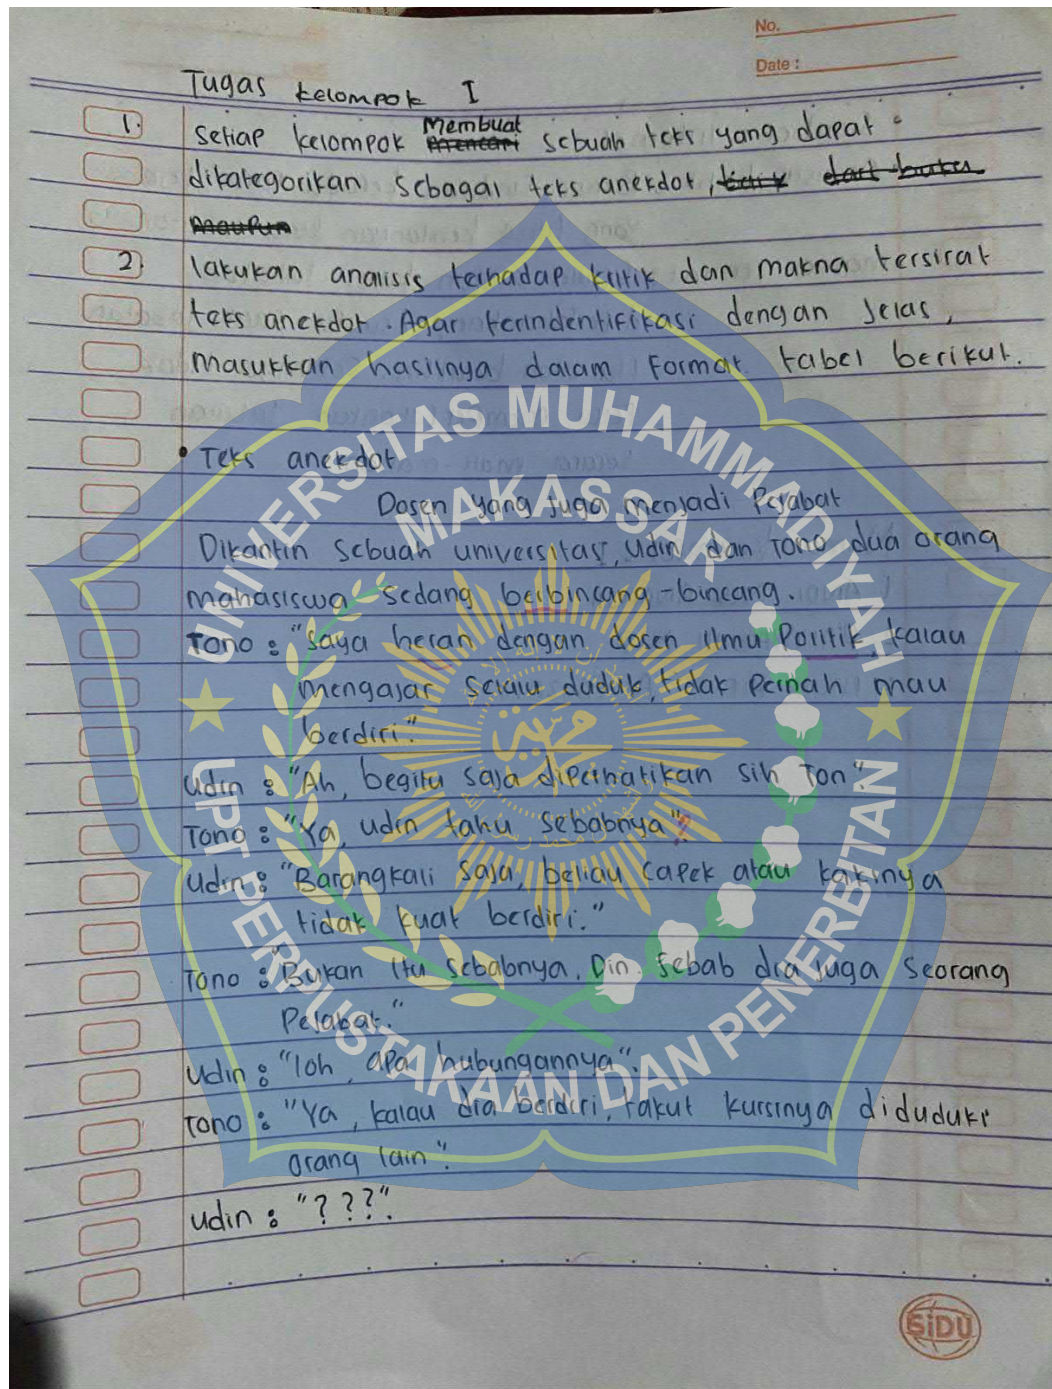 No.
Date :
Tugas kelompok I
1. Setiap kelompok Membuat mencari sebuah teks yang dapat
dikategorikan sebagai teks anekdot, dari buku
maupun
2. lakukan analisis terhadap kritik dan makna tersirat
teks anekdot. Agar terindentifikasi dengan jelas,
masukkan hasilnya dalam format tabel berikut.
• Teks anekdot
Dosen yang juga menjadi Pejabat
Dikantin sebuah universitas, udin dan Tono dua orang
mahasiswa sedang berbincang-bincang.
Tono : "Saya heran dengan dosen ilmu Politik kalau
mengajar selalu duduk, tidak pernah mau
berdiri."
Udin : "Ah, begitu saja diperhatikan sih Ton".
Tono : "Ya, udin tahu sebabnya"?
Udin : "Barangkali saja, beliau capek atau kakinya
tidak kuat berdiri."
Tono : "Bukan itu sebabnya, Din. Sebab dia juga seorang
Pejabat."
Udin : "loh, apa hubungannya".
Tono : "Ya, kalau dia berdiri, takut kursinya diduduki
orang lain".
Udin : "???".
SiDU
UNIVERSITAS MUHAMMADIYAH
MAKASSAR
UPT PERPUSTAKAAN DAN PENERBITAN